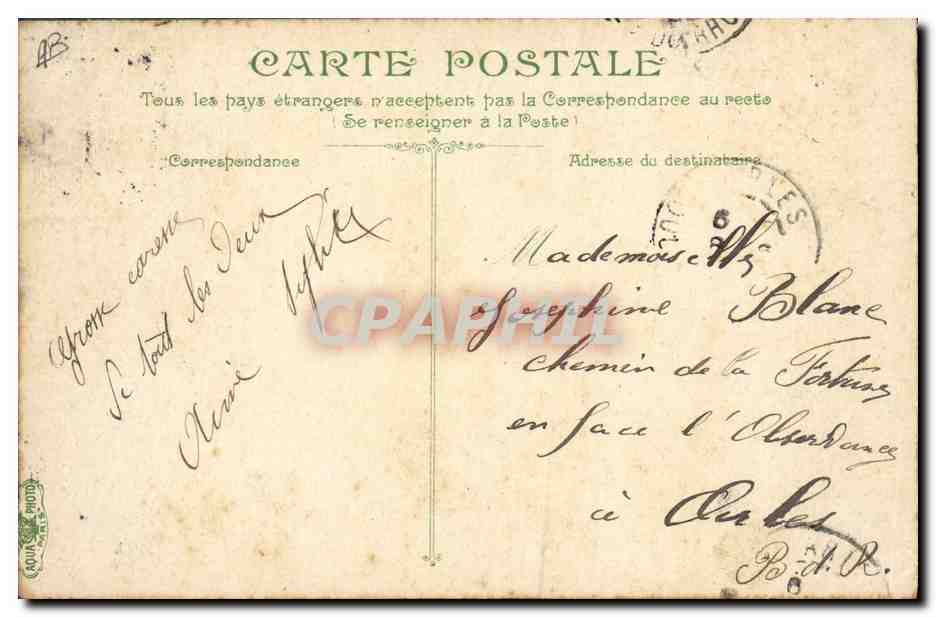 AB
CARTE POSTALE
Tous les pays étrangers n'acceptent pas la Correspondance au recto
(Se renseigner à la Poste)
Correspondance
Adresse du destinataire
Grosse caresse
de tout les deux
Mademoiselle
Josephine Blanc
chemin de la Fortune
en face l'Observance
à Arles
B. d. R.
RLES
6
CPAPHIL
AQUA PHOTO
PARIS